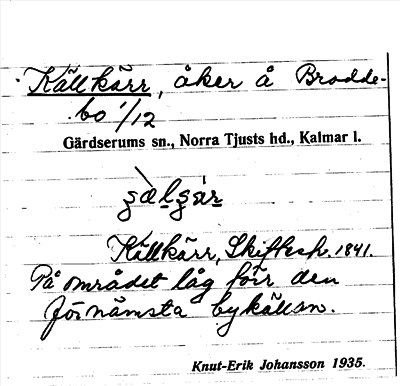 Källkärr, åker å Brodde-
bo 1/12
Gärdserums sn., Norra Tjusts hd., Kalmar l.
Källkärr, Skiftesh. 1841.
På området låg förr den
förnämsta bykällan.
Knut-Erik Johansson 1935.